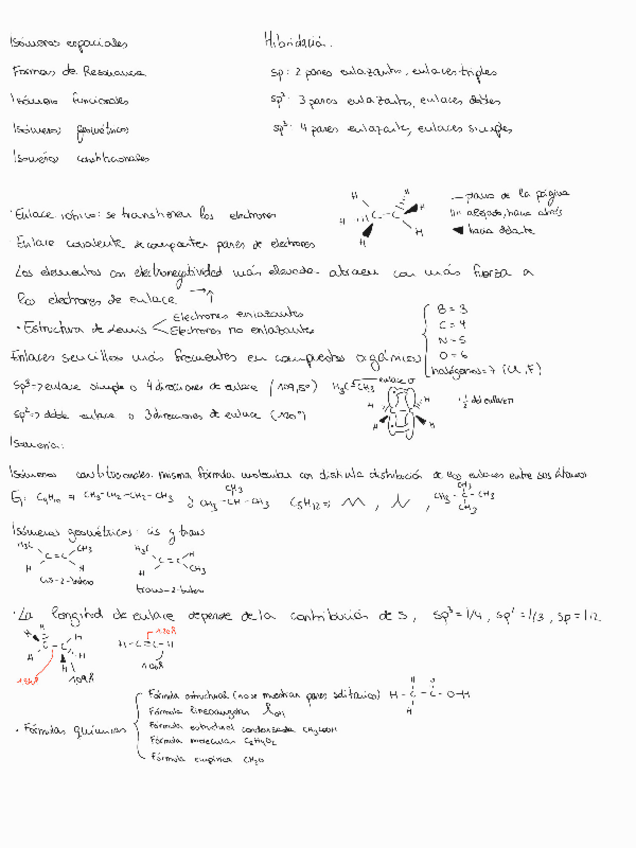 Isómeros espaciales
Formas de Resonancia
Isómeros funcionales
Isómeros geométricos
Isómeros constitucionales
Hibridación.
sp: 2 pares enlazantes, enlaces triples
sp²: 3 pares enlazantes, enlaces dobles
sp³: 4 pares enlazantes, enlaces simples
· Enlace iónico: se transfieren los electrones
· Enlace covalente: se comparten pares de electrones
— plano de la página
alejado, hacia atrás
hacia delante
Los elementos con electronegatividad más elevada atraen con más fuerza a
los electrones de enlace
· Estructura de Lewis
Electrones enlazantes
Electrones no enlazantes
B = 3
C = 4
N = 5
O = 6
halógenos = 7 (Cl, F)
Enlaces sencillos más frecuentes en compuestos orgánicos
sp³ -> enlace simple o 4 direcciones de enlace (109,5º) H₃C-CH₃
enlace σ
sp² -> doble enlace o 3 direcciones de enlace (120º)
Isomería:
Isómeros constitucionales: misma fórmula molecular con distinta distribución de los enlaces entre sus átomos
Ej: C₄H₁₀ => CH₃-CH₂-CH₂-CH₃ ó CH₃-CH-CH₃ C₅H₁₂ =>
CH₃
CH₃
CH₃-C-CH₃
CH₃
Isómeros geométricos: cis y trans
H₃C CH₃
C=C
H H
cis-2-buteno
H₃C H
C=C
H CH₃
trans-2-buteno
· La longitud de enlace depende de la contribución de s, sp³=1/4, sp²=1/3, sp=1/2
H-C≡C-H
· Fórmulas químicas
Fórmula estructural (no se muestran pares solitarios)
Fórmula lineoangular OH
Fórmula estructural condensada CH₃COOH
Fórmula molecular C₂H₄O₂
Fórmula empírica CH₂O
H O
H-C-C-O-H
H